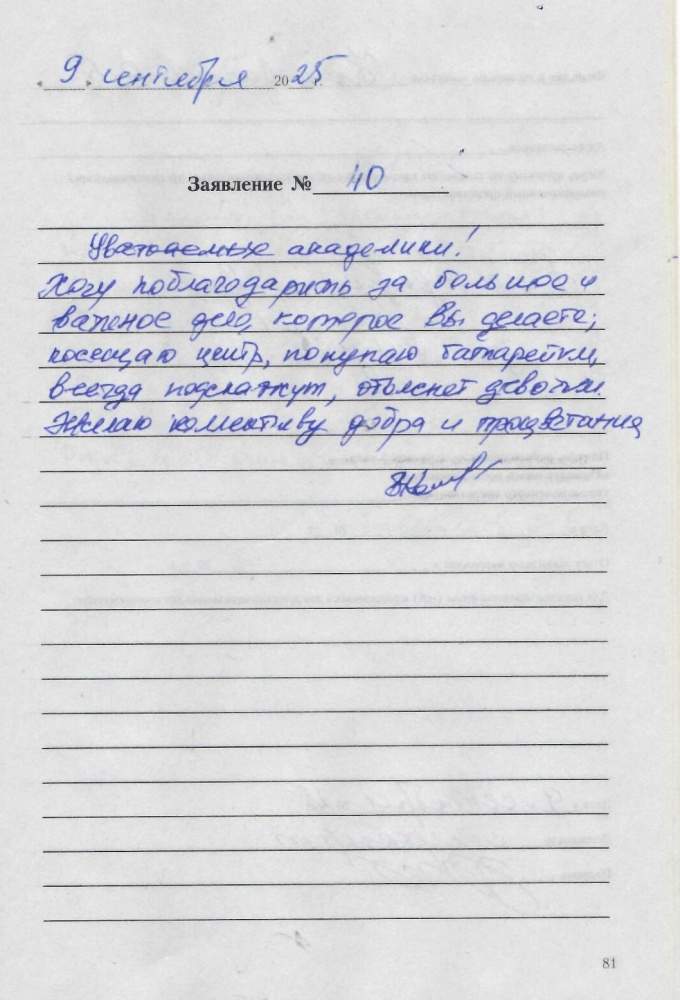 « 9 » сентября 2025 г.
Заявление № 40
Уважаемые академики!
Хочу поблагодарить за большое и
важное дело, которое Вы делаете;
посещаю центр, покупаю батарейки,
всегда подскажут, объяснят девочки.
Желаю коллективу добра и процветания
81